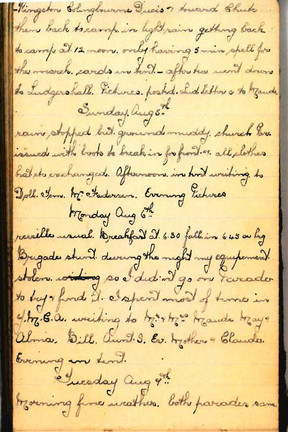 Kingston Colingbourne Ducis & Church
then back to camp in light rain getting back
to camp at 12 noon. only having 5 min. spell for
the march. cards in tent – after tea went down
to Ludgershall. Pictures. postd. 2nd letter to Maude
Sunday Aug 5th
rain stopped but ground muddy. church Par.
issued with boots to break in for front. all clothes
hats etc exchanged. Afternoon. in tent writing to
Doll. Jen. Mr Federsen. Evening Pictures
Monday Aug 6th
reveille usual. Breakfast at 6.30 fall in 6 45 a big
Brigade stunt. during the night my equipment
stolen so I didn't go on Parade
to try & find it. I spent most of time in
Y.M.C.A. writing to Mr & Mrs Maude May &
Alma. Bill. Aunt S. Ev. Mother & Claude
Evening in tent.
Tuesday Aug 7th
Morning fine weather. both parades same